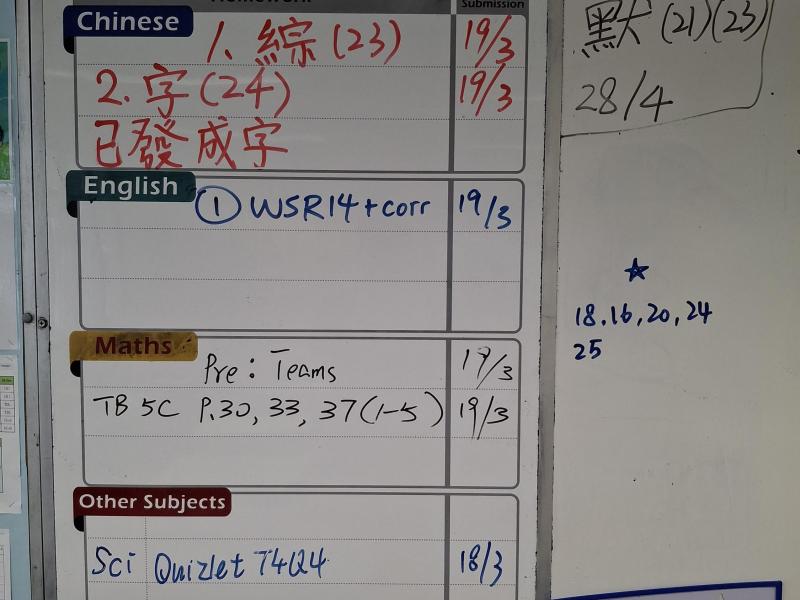 Submission
Chinese
1. 綜(23) 19/3
2. 字(24) 19/3
已發成字
English
① WSR14+corr 19/3
Maths
Pre: Teams 19/3
TB 5C P.30, 33, 37(1-5) 19/3
Other Subjects
Sci Quizlet T4Q4 18/3
默(21)(23)
28/4
☆
18.16,20,24
25